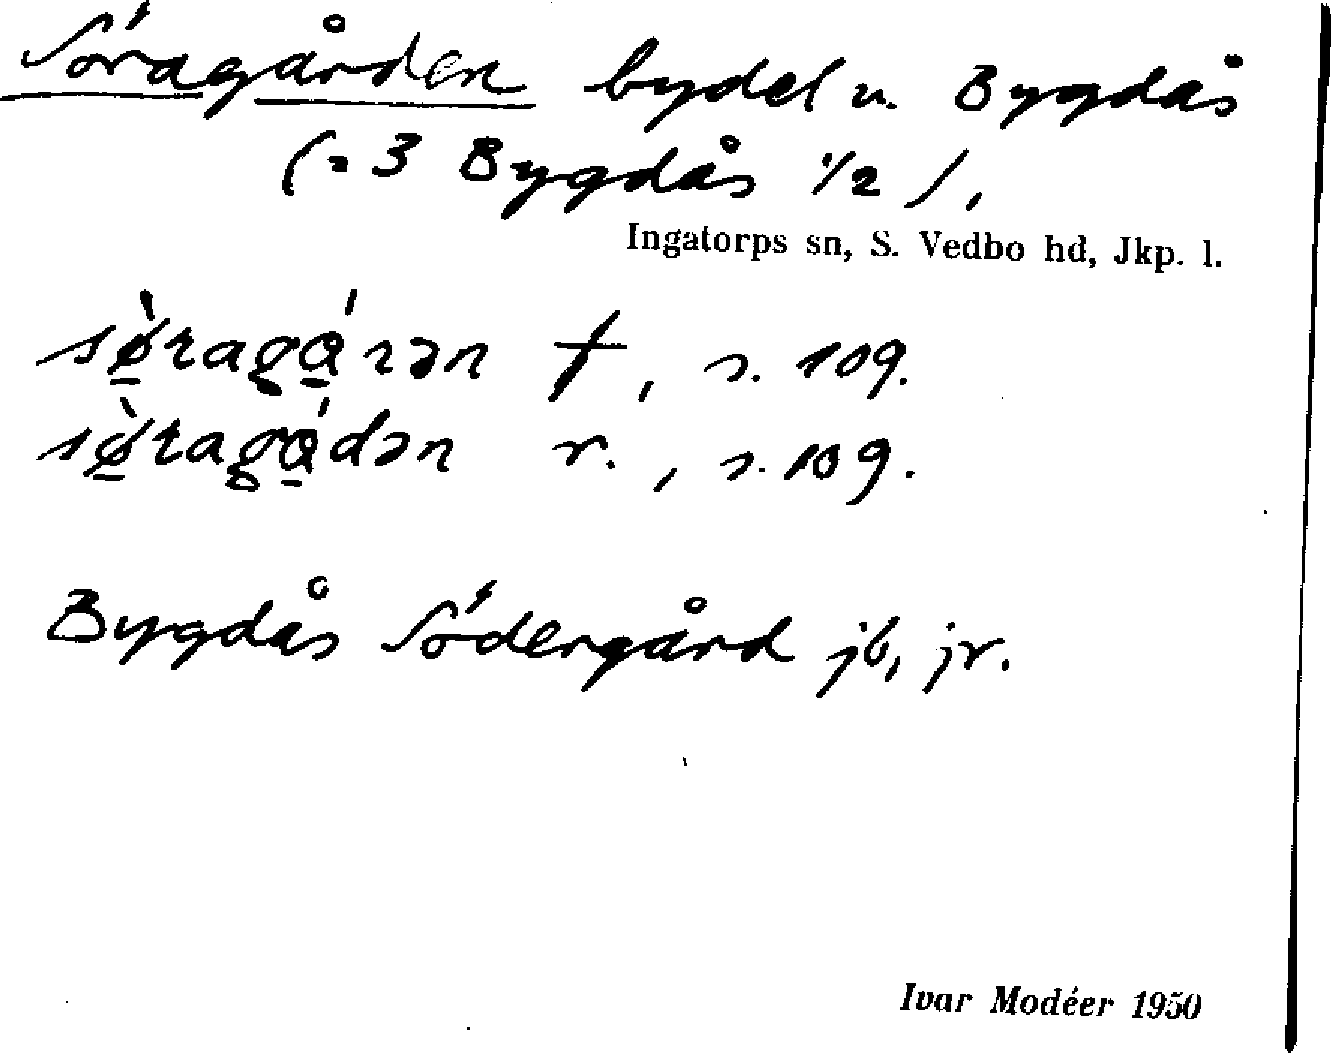 Söragården bydel u. Bygdås
(= 3 Bygdås 1/2).
Ingatorps sn, S. Vedbo hd, Jkp. l.
sø̱̀ragó̱rən †, s. 109.
sø̱̀ragó̱dən r., s. 109.
Bygdås Södergård jb, jr.
Ivar Modéer 1950